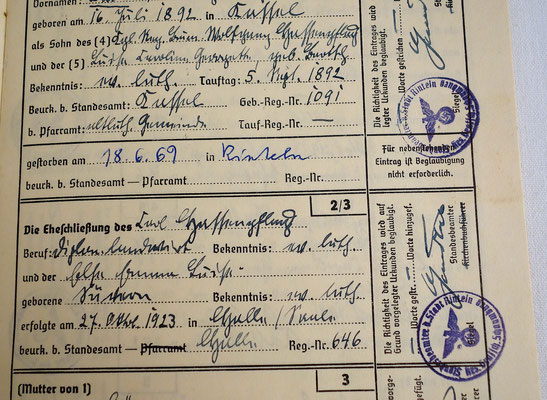 Vornamen:
geboren am 16. Juli 1892 in Kassel
als Sohn des (4) Kgl. Reg. Wolfgang Hassenpflug
und der (5) Luise Caroline geb.
Bekenntnis: ev. luth. Tauftag: 5. Sept. 1892
Beurk. b. Standesamt: Kassel Geb.-Reg.-Nr. 1091
b. Pfarramt: altluth. Gemeinde Tauf-Reg.-Nr. —
gestorben am 18.6.69 in Rinteln
beurk. b. Standesamt — Pfarramt Reg.-Nr.
2/3
Die Eheschließung des Carl Hassenpflug
Beruf: Diplomlandwirt Bekenntnis: ev. luth.
und der Luise
geborene Bekenntnis: ev. luth.
erfolgte am 27. Okt. 1923 in Halle / Saale
beurk. b. Standesamt — Pfarramt Halle Reg.-Nr. 646
3
(Mutter von 1)
Die Richtigkeit des Eintrages wird
legter Urkunden beglaubigt.
— Worte gestrichen —
Siegel
Für nebenstehenden
Eintrag ist Beglaubigung
nicht erforderlich.
Die Richtigkeit des Eintrages wird auf
Grund vorgelegter Urkunden beglaubigt.
— Worte gestr. — Worte hinzugef.
Standesbeamter
Kirchenbuchführer
Siegel